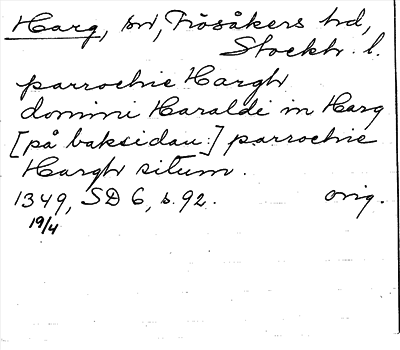 Harg, sn, Frösåkers hd,
Stockh. l.
parrochie Hargh
domini Haraldi in Harg
[på baksidan:] parrochie
Hargh situm.
1349, SD 6, s. 92. orig.
19/4